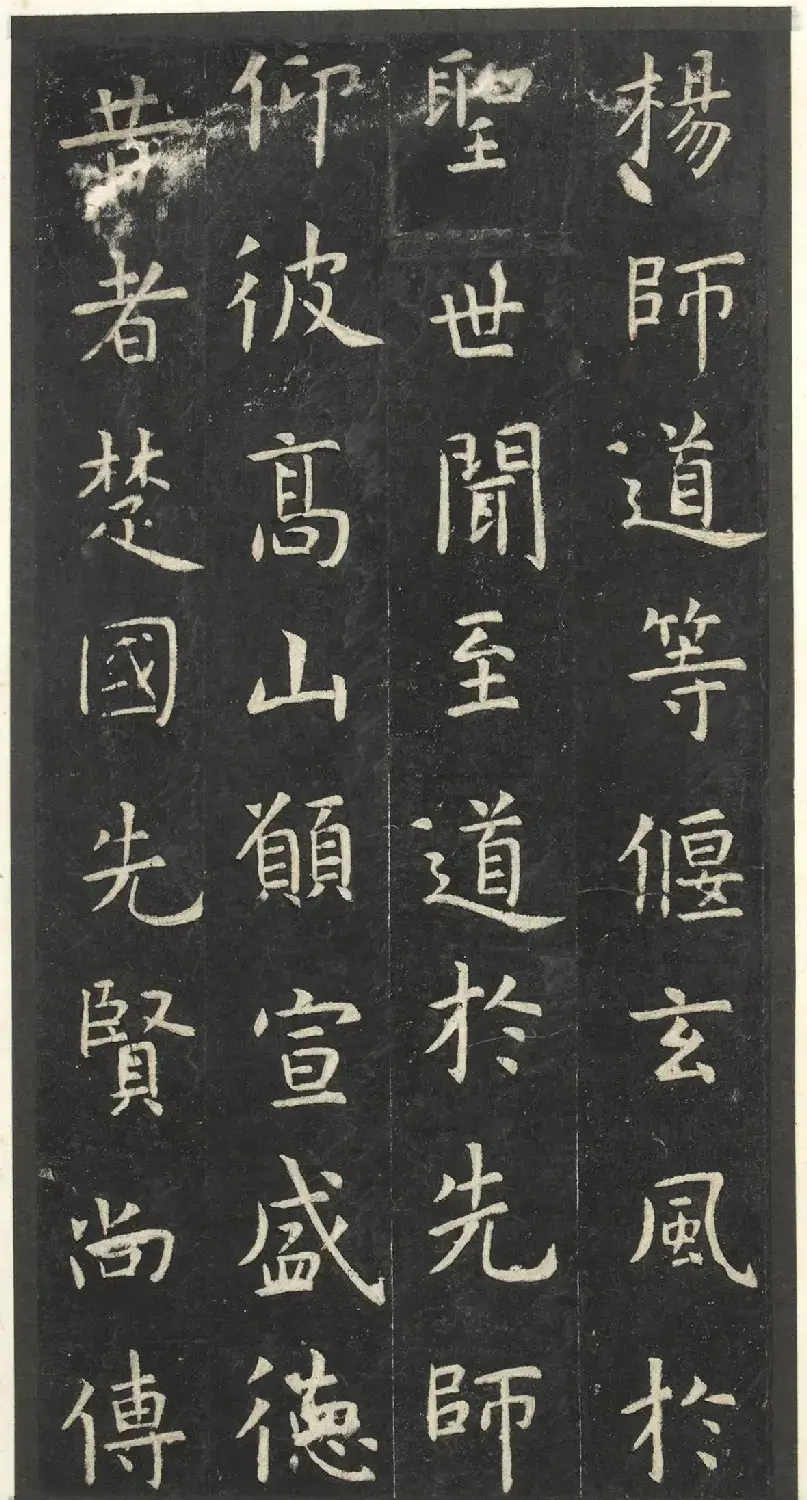 楊師道等偃玄風於
聖世聞至道於先師
仰彼高山願宣盛德
昔者楚國先賢尚傳